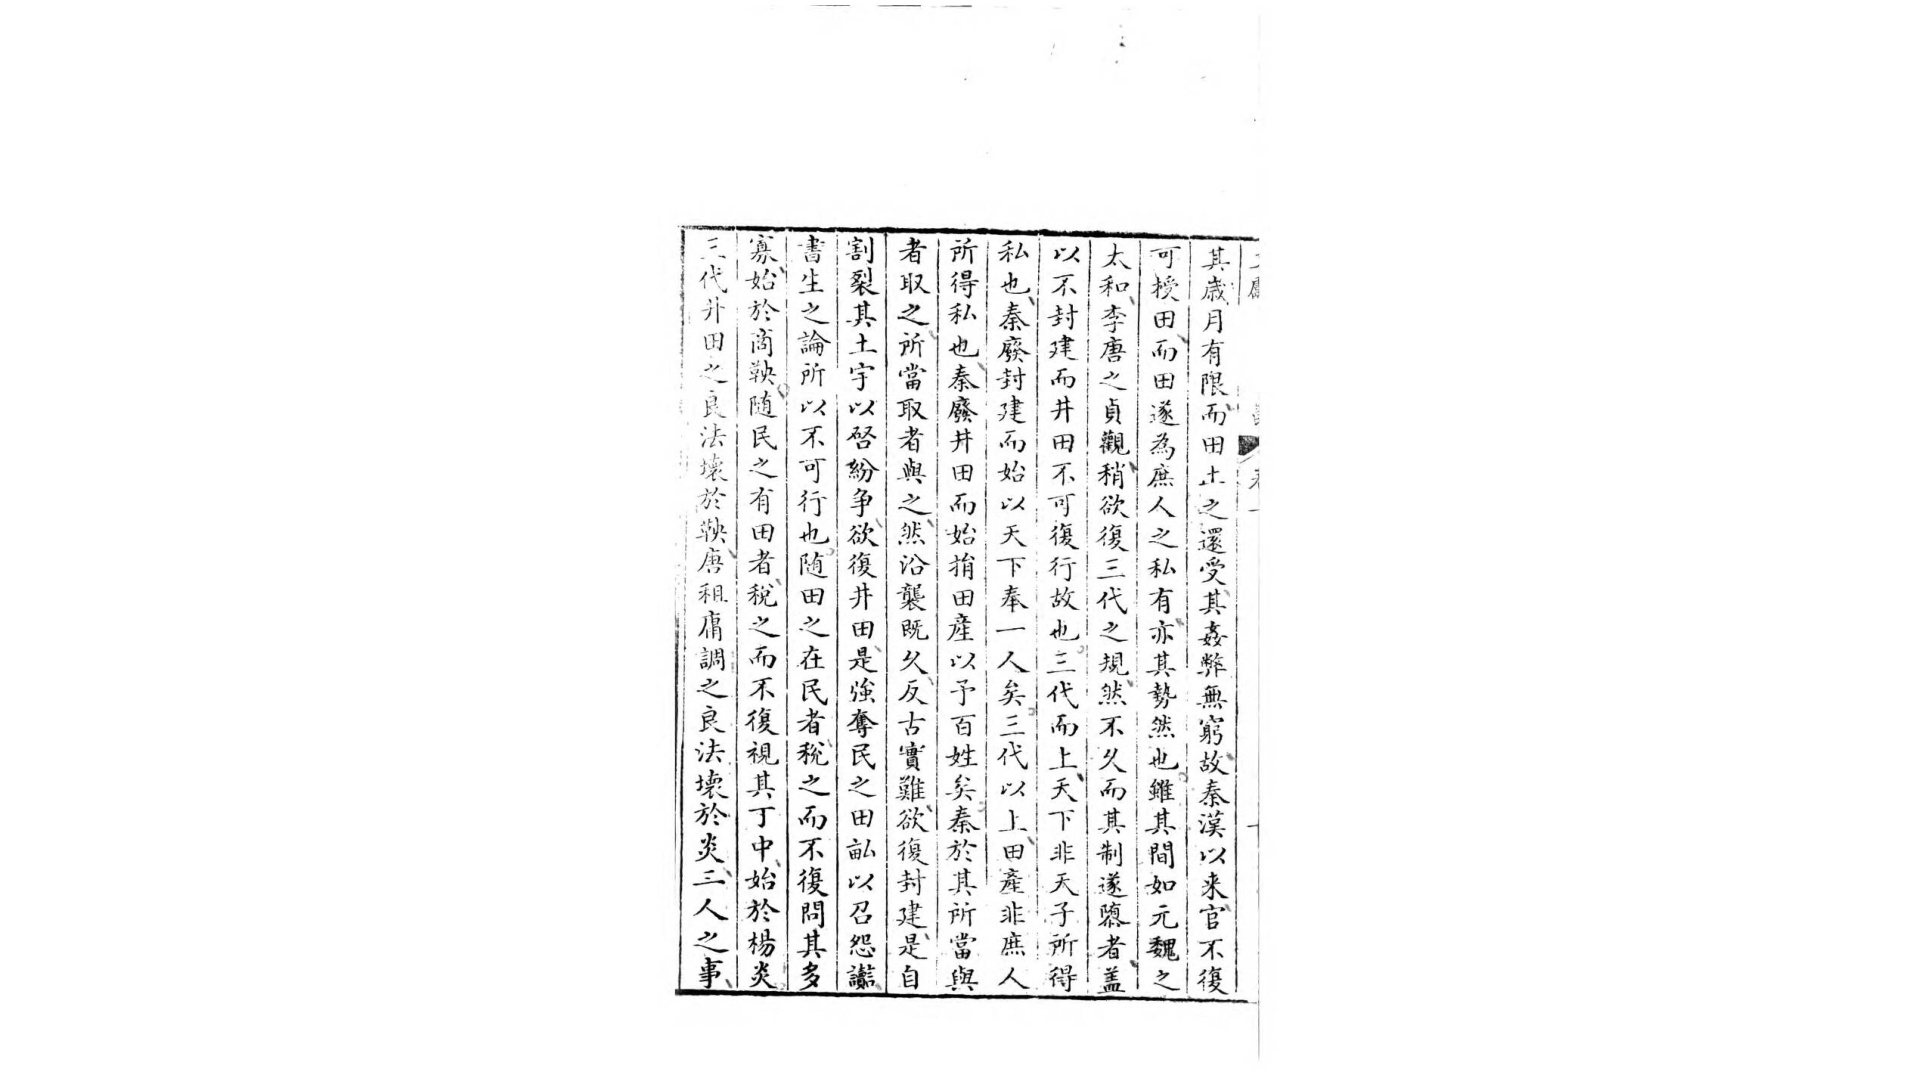 其歲月有限而田土之還受其姦弊無窮故秦漢以来官不復
可授田而田遂為庶人之私有亦其勢然也雖其間如元魏之
太和李唐之貞觀稍欲復三代之規然不久而其制遂隳者盖
以不封建而井田不可復行故也三代而上天下非天子所得
私也秦廢封建而始以天下奉一人矣三代以上田產非庶人
所得私也秦廢井田而始捐田產以予百姓矣秦於其所當與
者取之所當取者與之然沿襲既久反古實難欲復封建是自
割裂其土宇以啓紛争欲復井田是強奪民之田畝以召怨讟
書生之論所以不可行也随田之在民者稅之而不復問其多
寡始於商鞅随民之有田者稅之而不復視其丁中始於楊炎
三代井田之良法壞於鞅唐租庸調之良法壞於炎二人之事